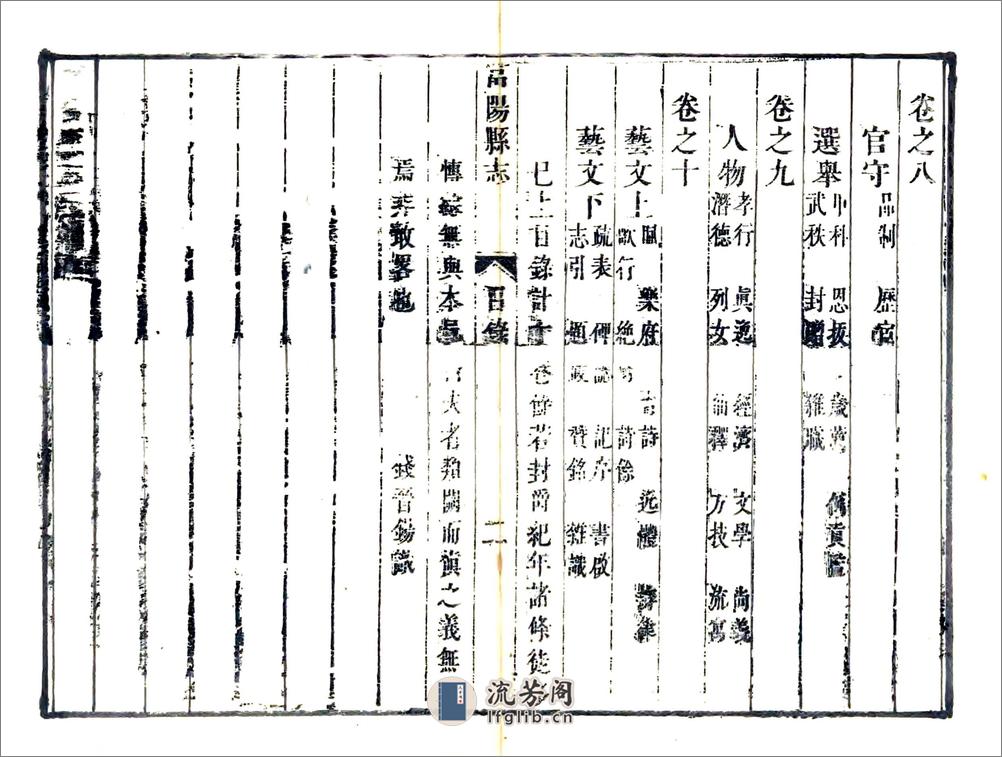 卷之八
官守 品制 歷官
選舉 甲科 恩拔 歲薦 例貢監
武秩 封贈 雜職
卷之九
人物 孝行 眞逸 經濟 文學 尚義
潛德 列女 仙釋 方技 流寓
卷之十
藝文上 賦 樂府 古詩 近體
歌行 絶句 詩餘
藝文下 疏表 碑誌 記序 書啟
志引 題跋 贊銘 雜識
已上目錄計十卷餘若封爵紀年諸條徒
博 無與本 大者類闕而 之義無
焉 敢畧也 錢晉錫識
富陽縣志
目錄
二
流芳阁
lfglib.cn